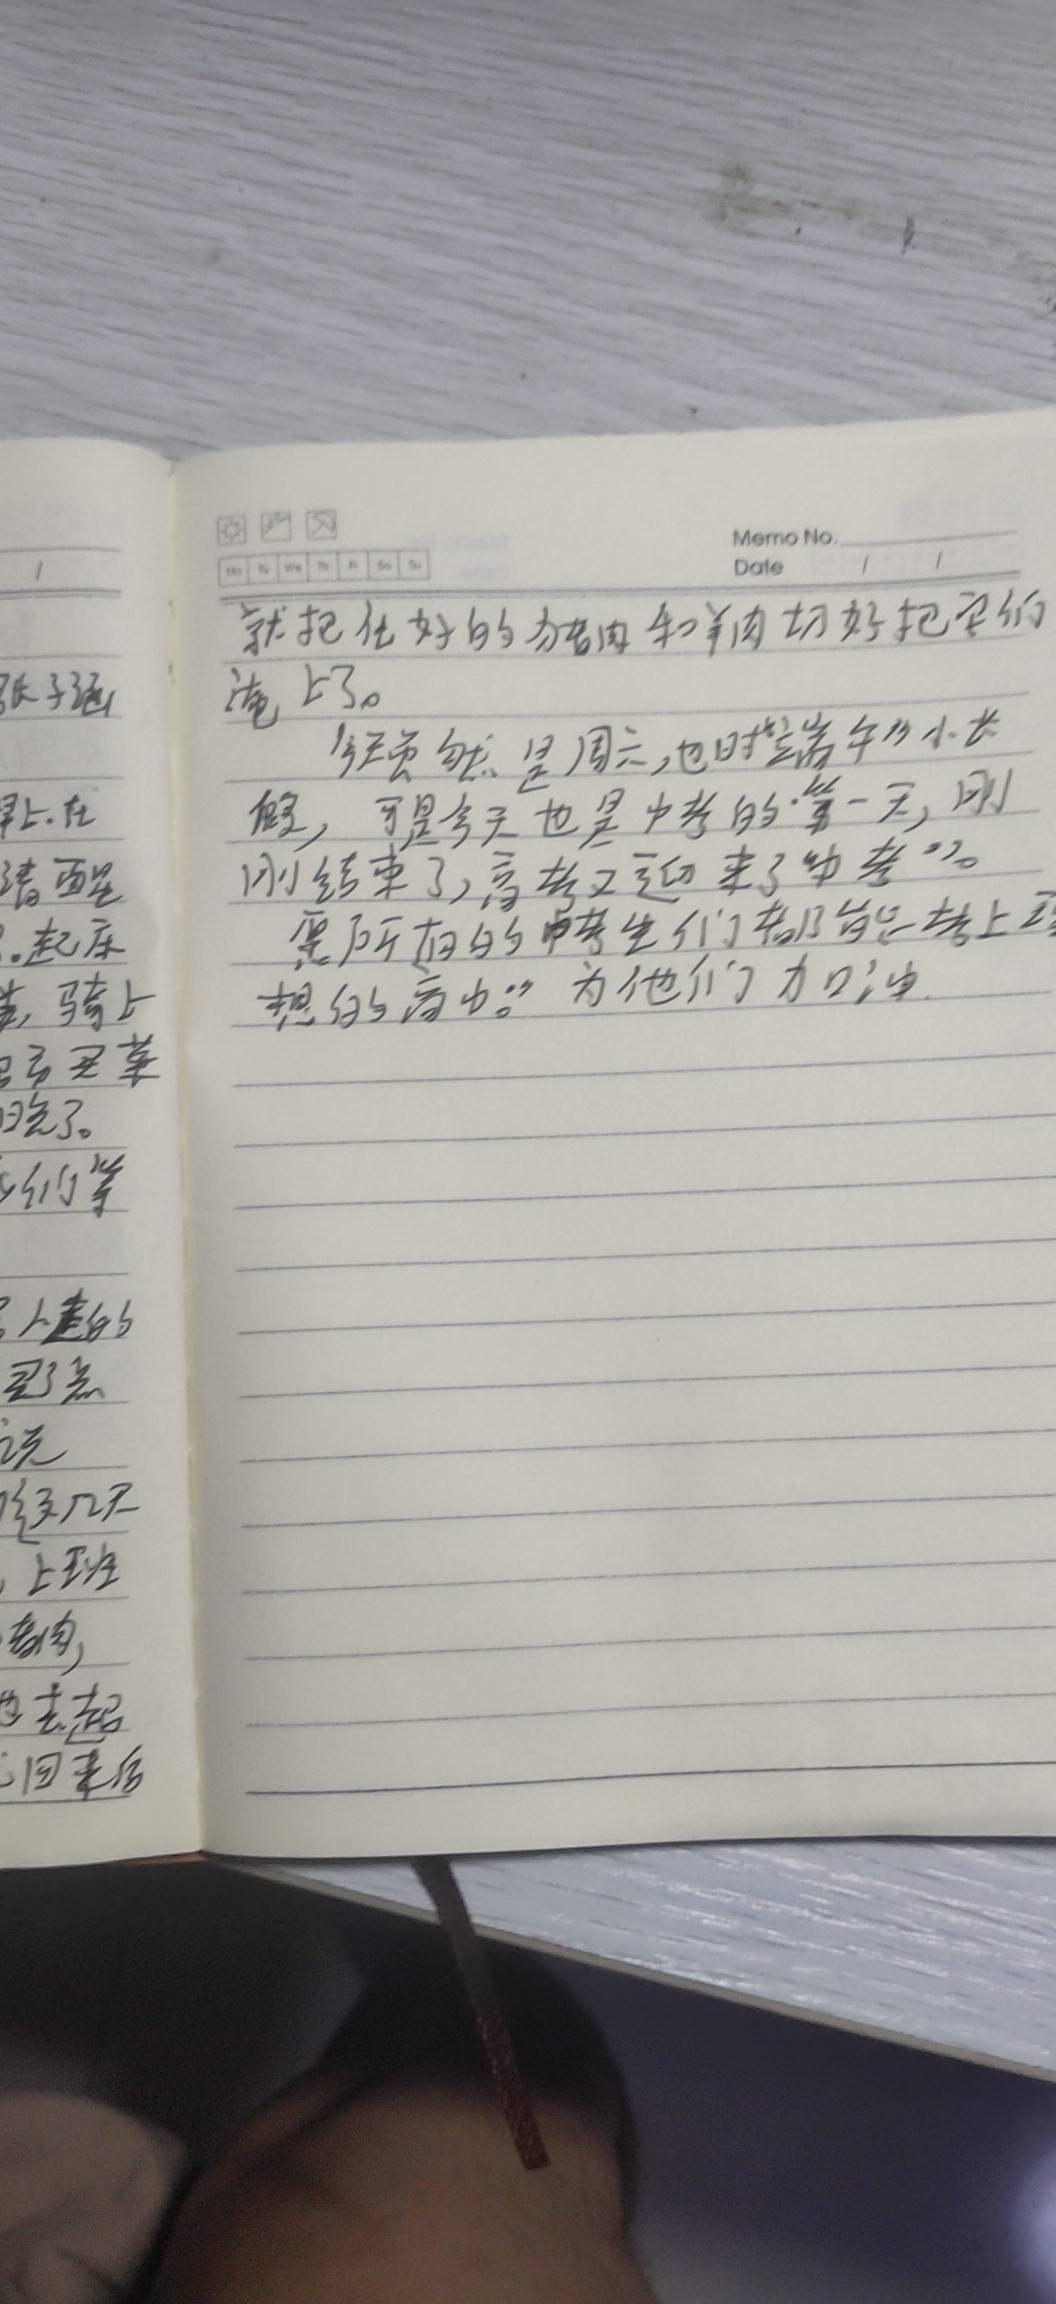 张子涵
早上.在
清醒
.起床
,骑上
买菜
了。
们等
的
买了点
说
这几天
,上班
猪肉,
也去超
回来后
Memo No.
Date / /
Mo Tu We Th Fr Sa Su
就把化好的猪肉和羊肉切好把它们
淹上了。
今天虽然是周六,也时"端午"小长
假,可是今天也是中考的第一天,刚
刚结束了,高考又迎来了"中考"。
愿所有的中考生们都能考上理
想的高中。"为他们加油.